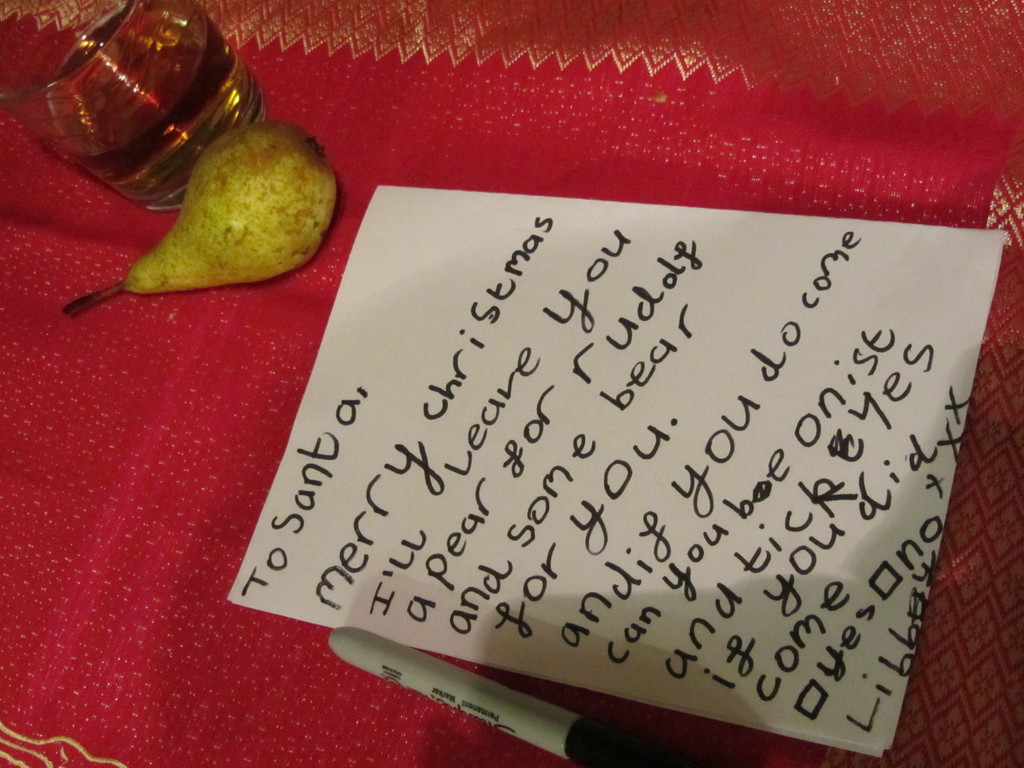 To Santa,
merry christmas
I'll Leave you
a pear for ruddy
and some bear
for you.
and if you do come
can you be onist
and tick yes
if you did
come
□yes □no
Libby xxxx
Permanent Marker